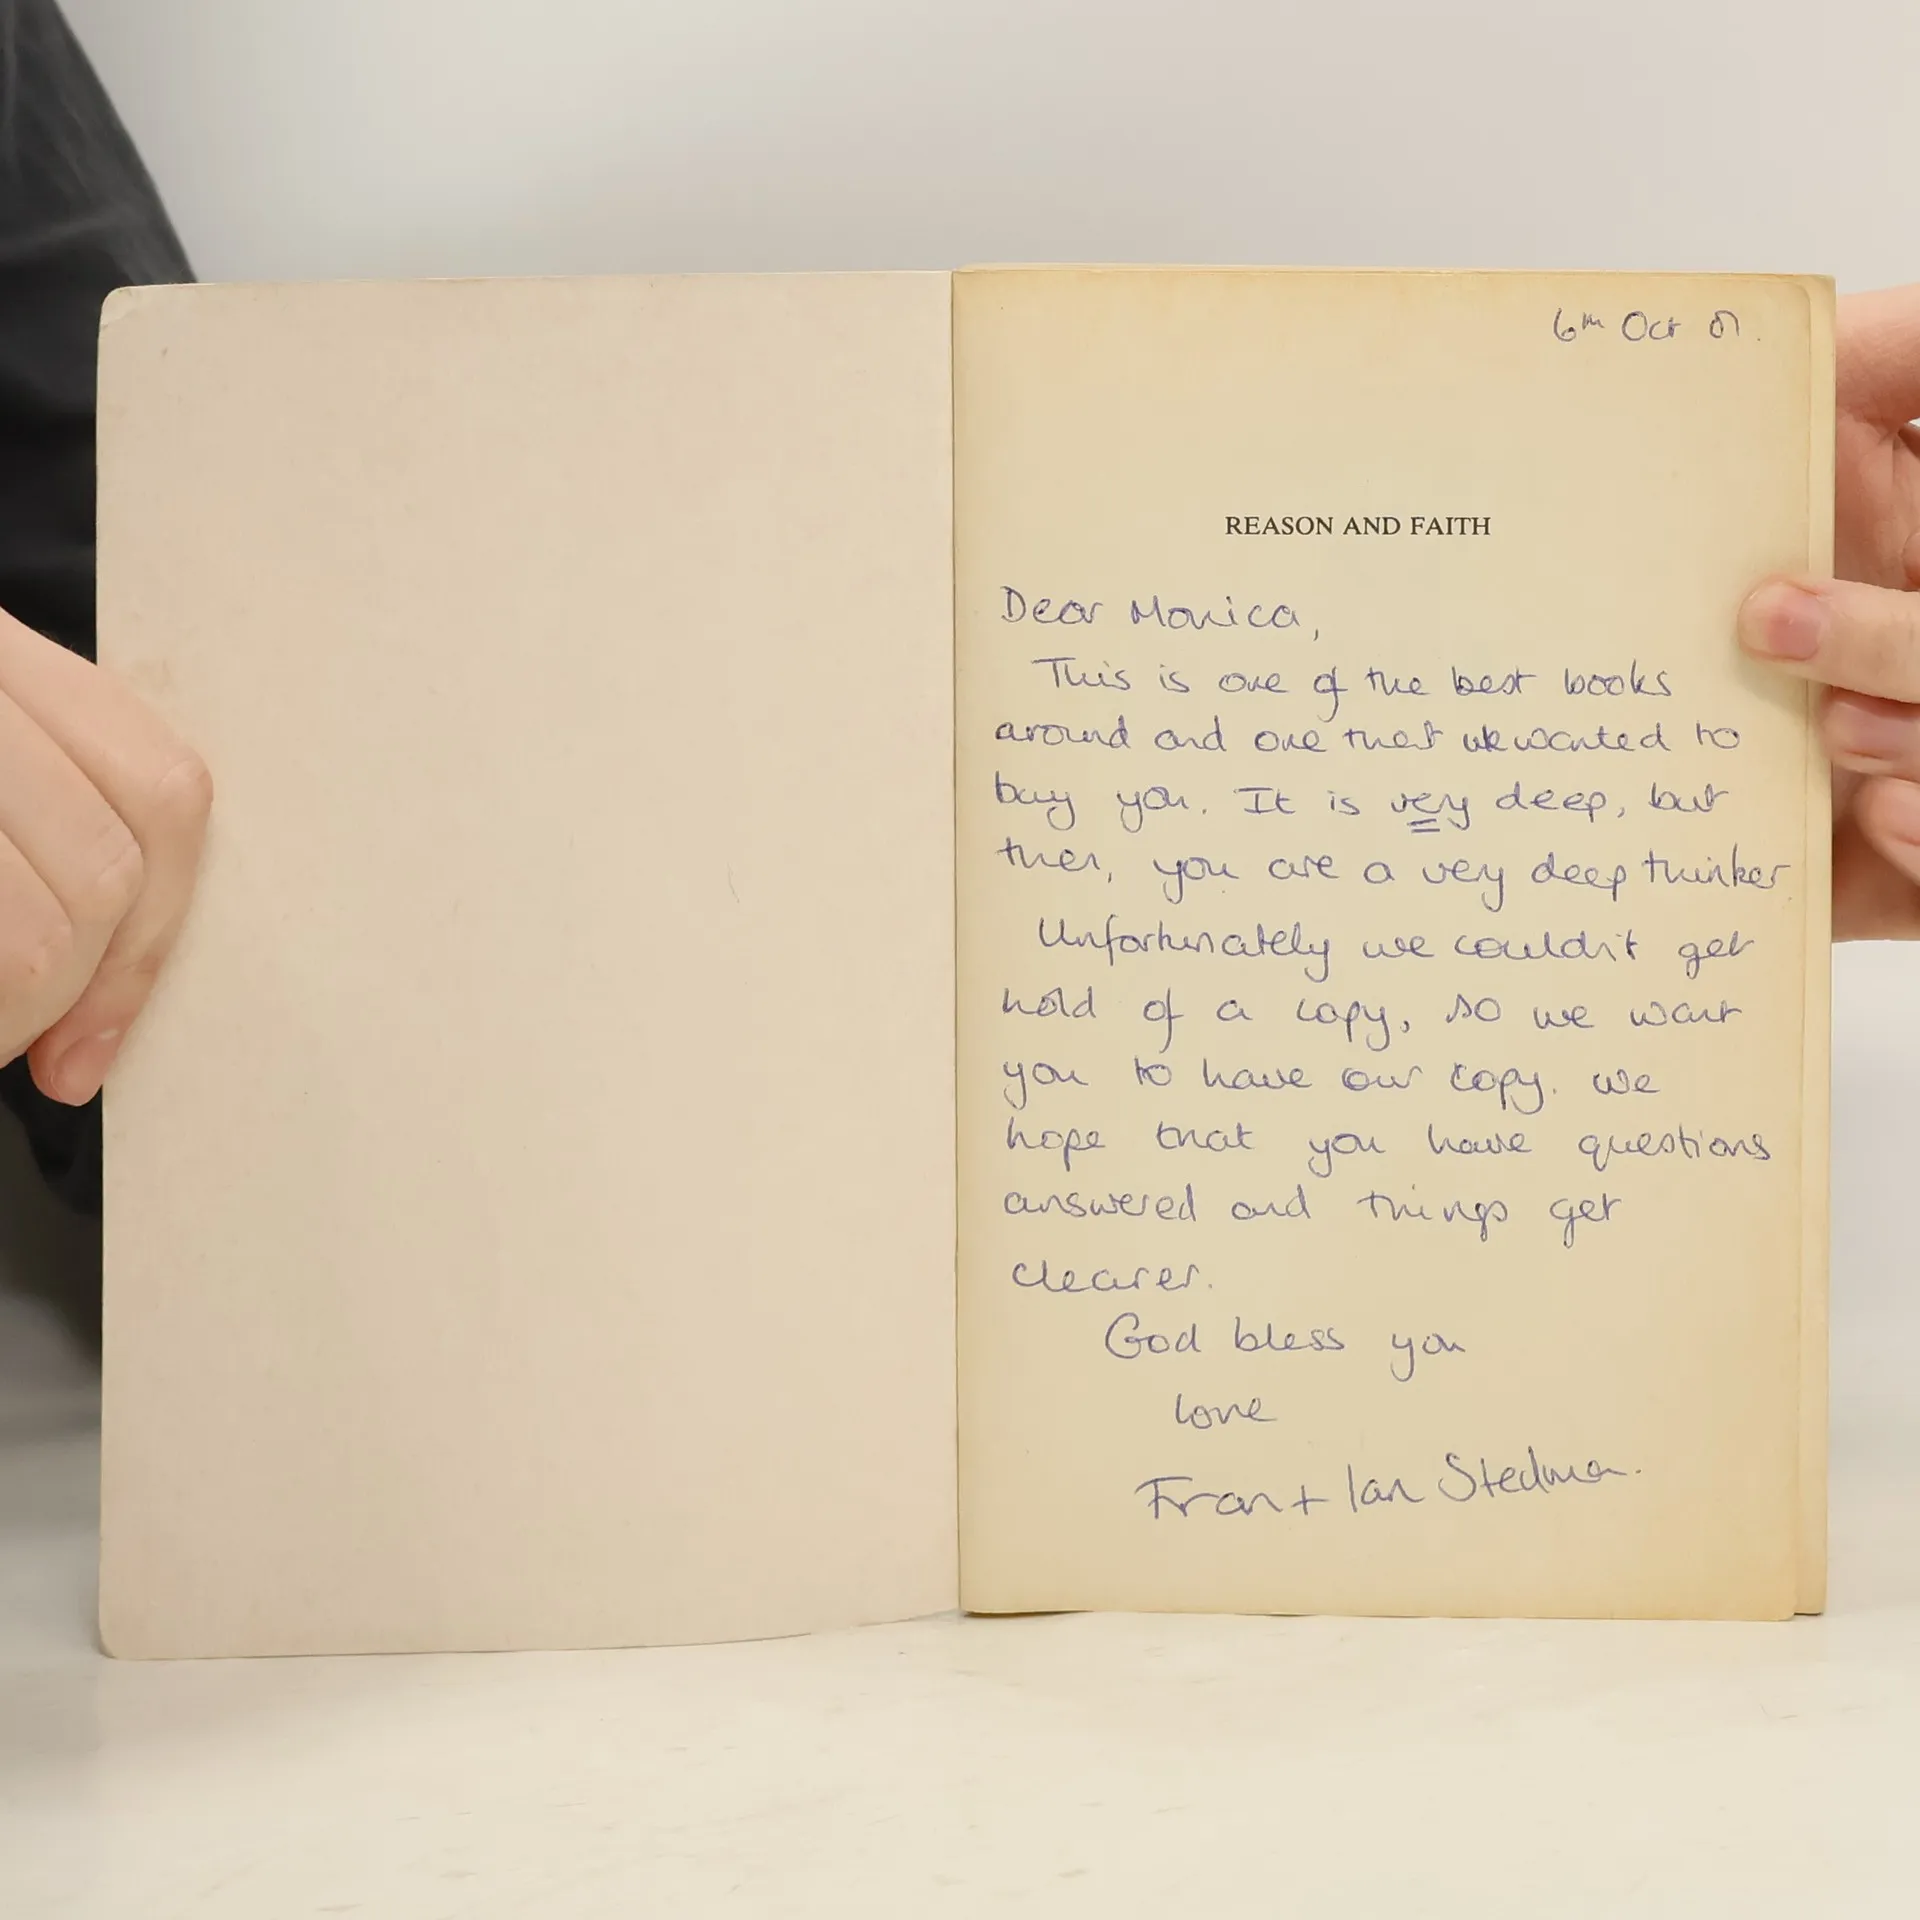 6th Oct 01.
REASON AND FAITH
Dear Monica,
This is one of the best books
around and one that we wanted to
buy you. It is very deep, but
then, you are a very deep thinker
Unfortunately we couldn't get
hold of a copy, so we want
you to have our copy. We
hope that you have questions
answered and things get
clearer.
God bless you
love
Fran + Ian Stedman.